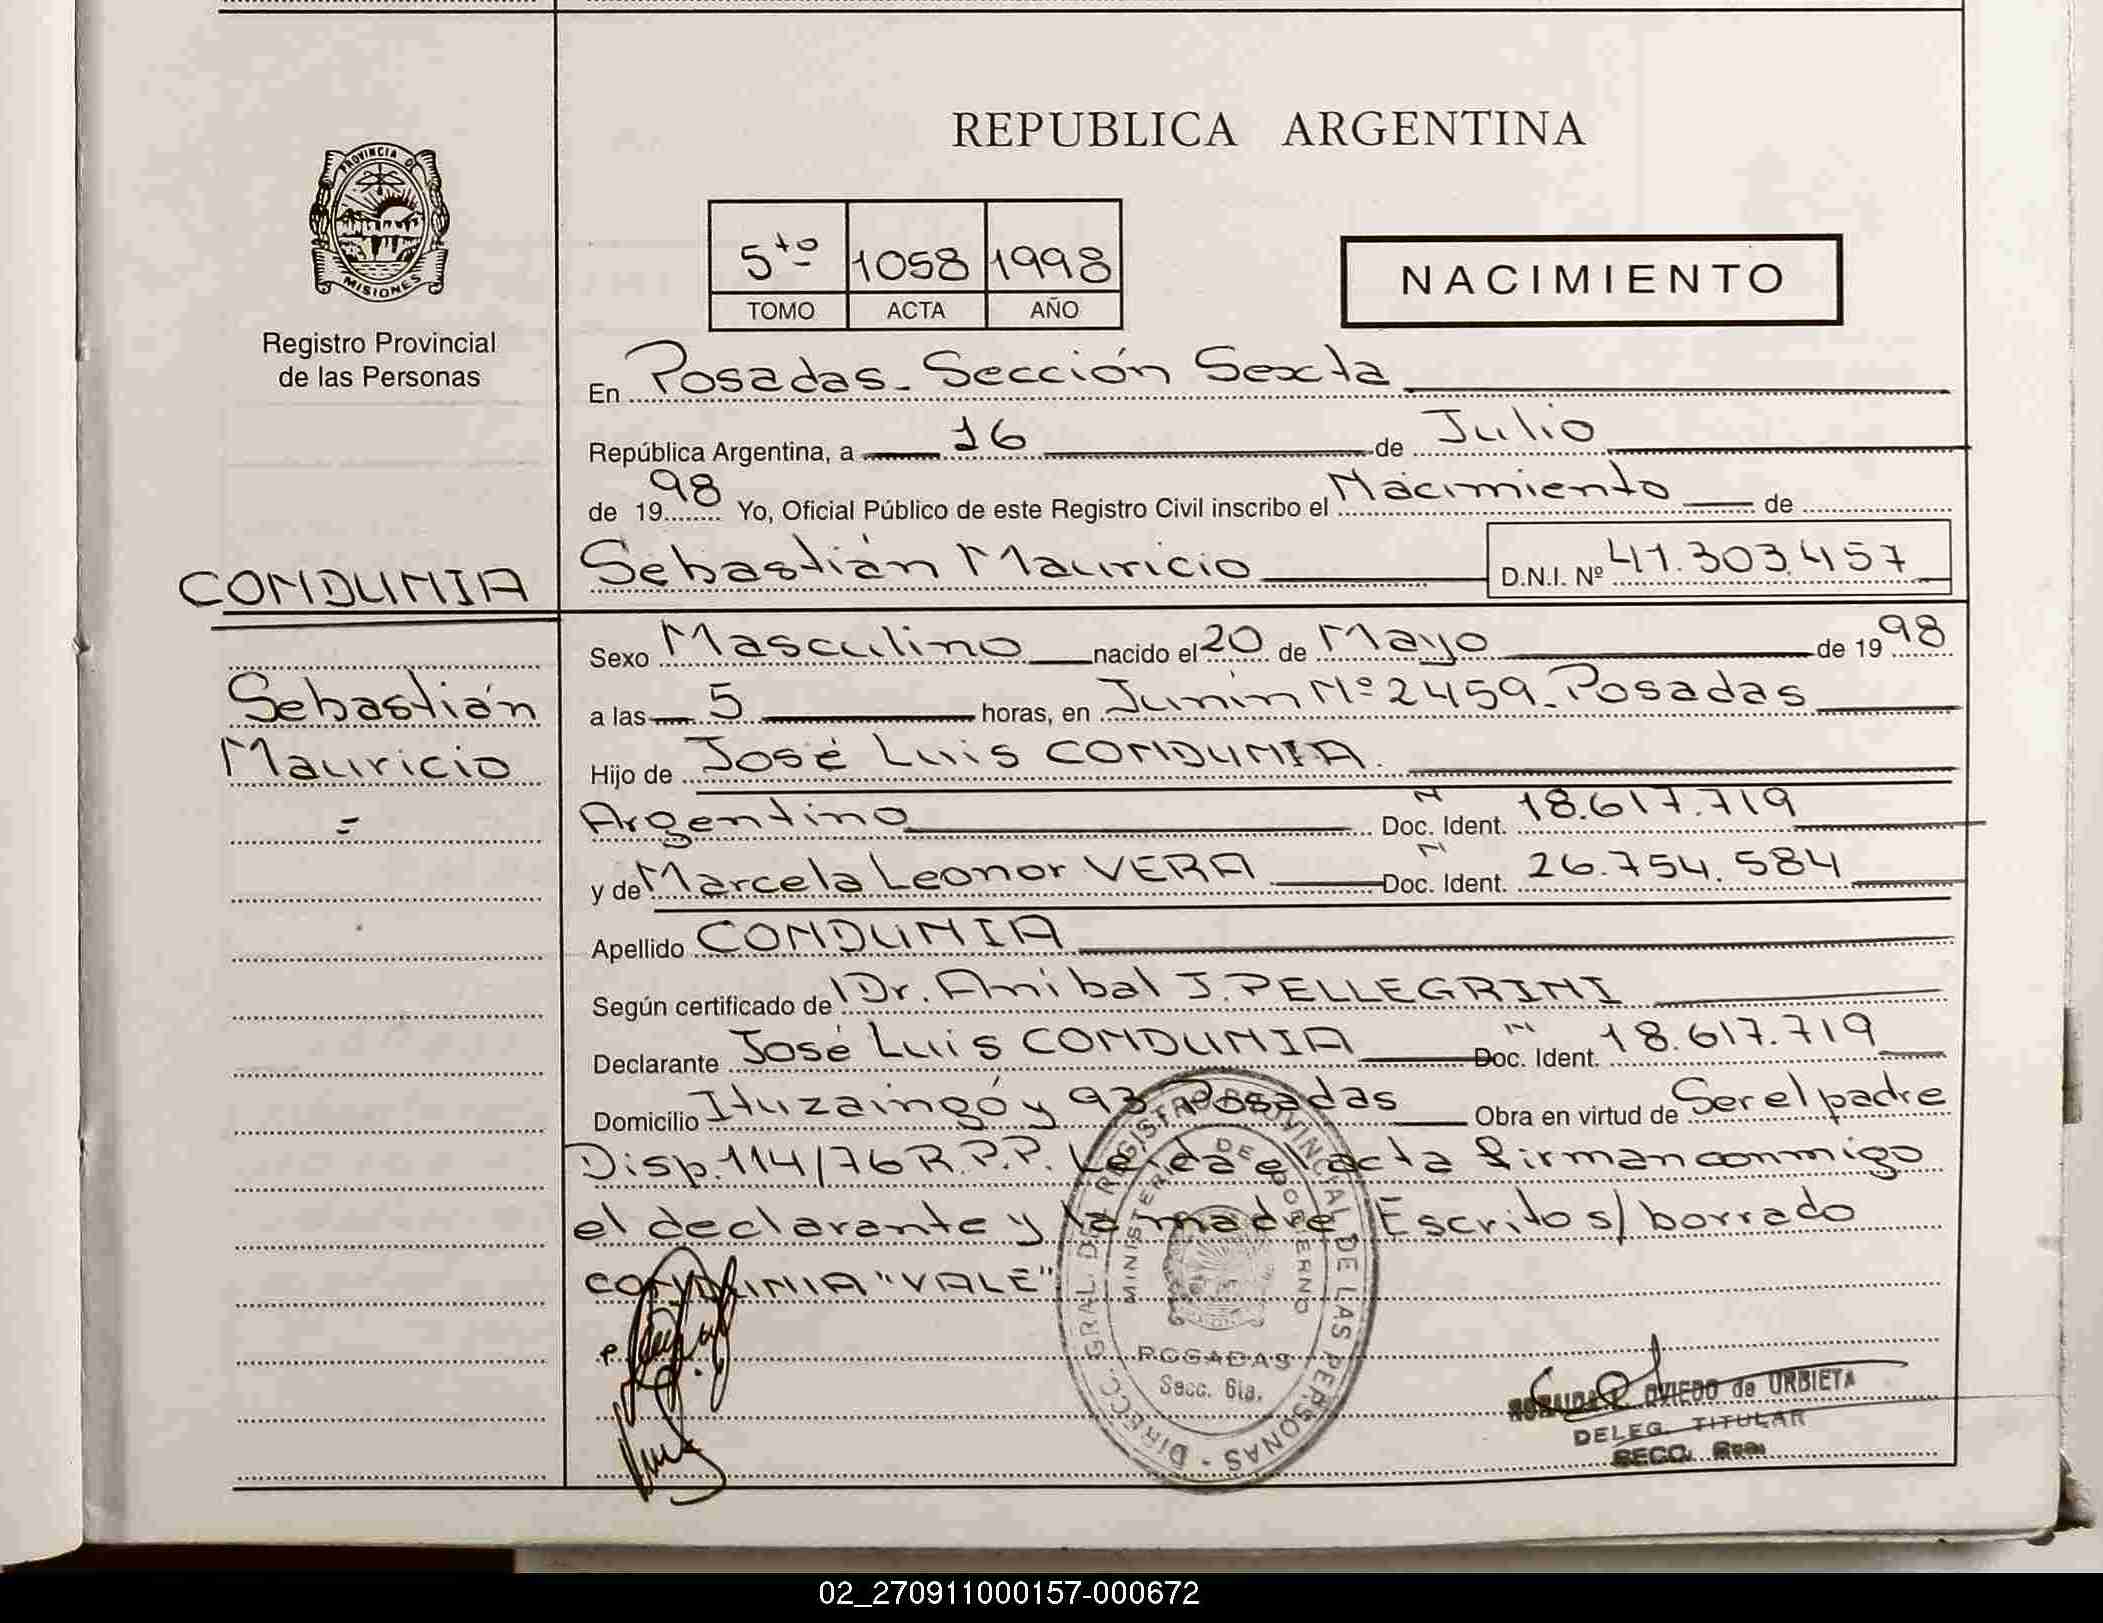 REPUBLICA ARGENTINA
PROVINCIA DE
MISIONES
Registro Provincial
de las Personas
5to 1058 1998
TOMO ACTA AÑO
NACIMIENTO
En Posadas - Sección Sexta
República Argentina, a 16 de Julio
de 1998 Yo, Oficial Público de este Registro Civil inscribo el Nacimiento de
CONDUNIA
Sebastián Mauricio D.N.I. Nº 41.303.457
Sexo Masculino nacido el 20 de Mayo de 1998
Sebastián
a las 5 horas, en Junín Nº 2459 - Posadas
Mauricio
Hijo de José Luis CONDUNIA.
=
Argentino Doc. Ident. N 18.617.719
y de Marcela Leonor VERA Doc. Ident. N 26.754.584
Apellido CONDUNIA
Según certificado de Dr. Anibal J. PELLEGRINI
Declarante José Luis CONDUNIA Doc. Ident. N 18.617.719
Domicilio Ituzaingó y 93 Posadas Obra en virtud de Ser el padre
Disp. 114/76 R.P.P. Leida el acta firman conmigo
el declarante y la madre Escrito s/ borrado
CONDUNIA "VALE"
DIRECC. GRAL. DEL REGISTRO PROVINCIAL DE LAS PERSONAS
MINISTERIO DE GOBIERNO
POSADAS
Secc. 6ta.
OVIEDO de URBIETA
DELEG. TITULAR
SECC. 6ta.
02_270911000157-000672